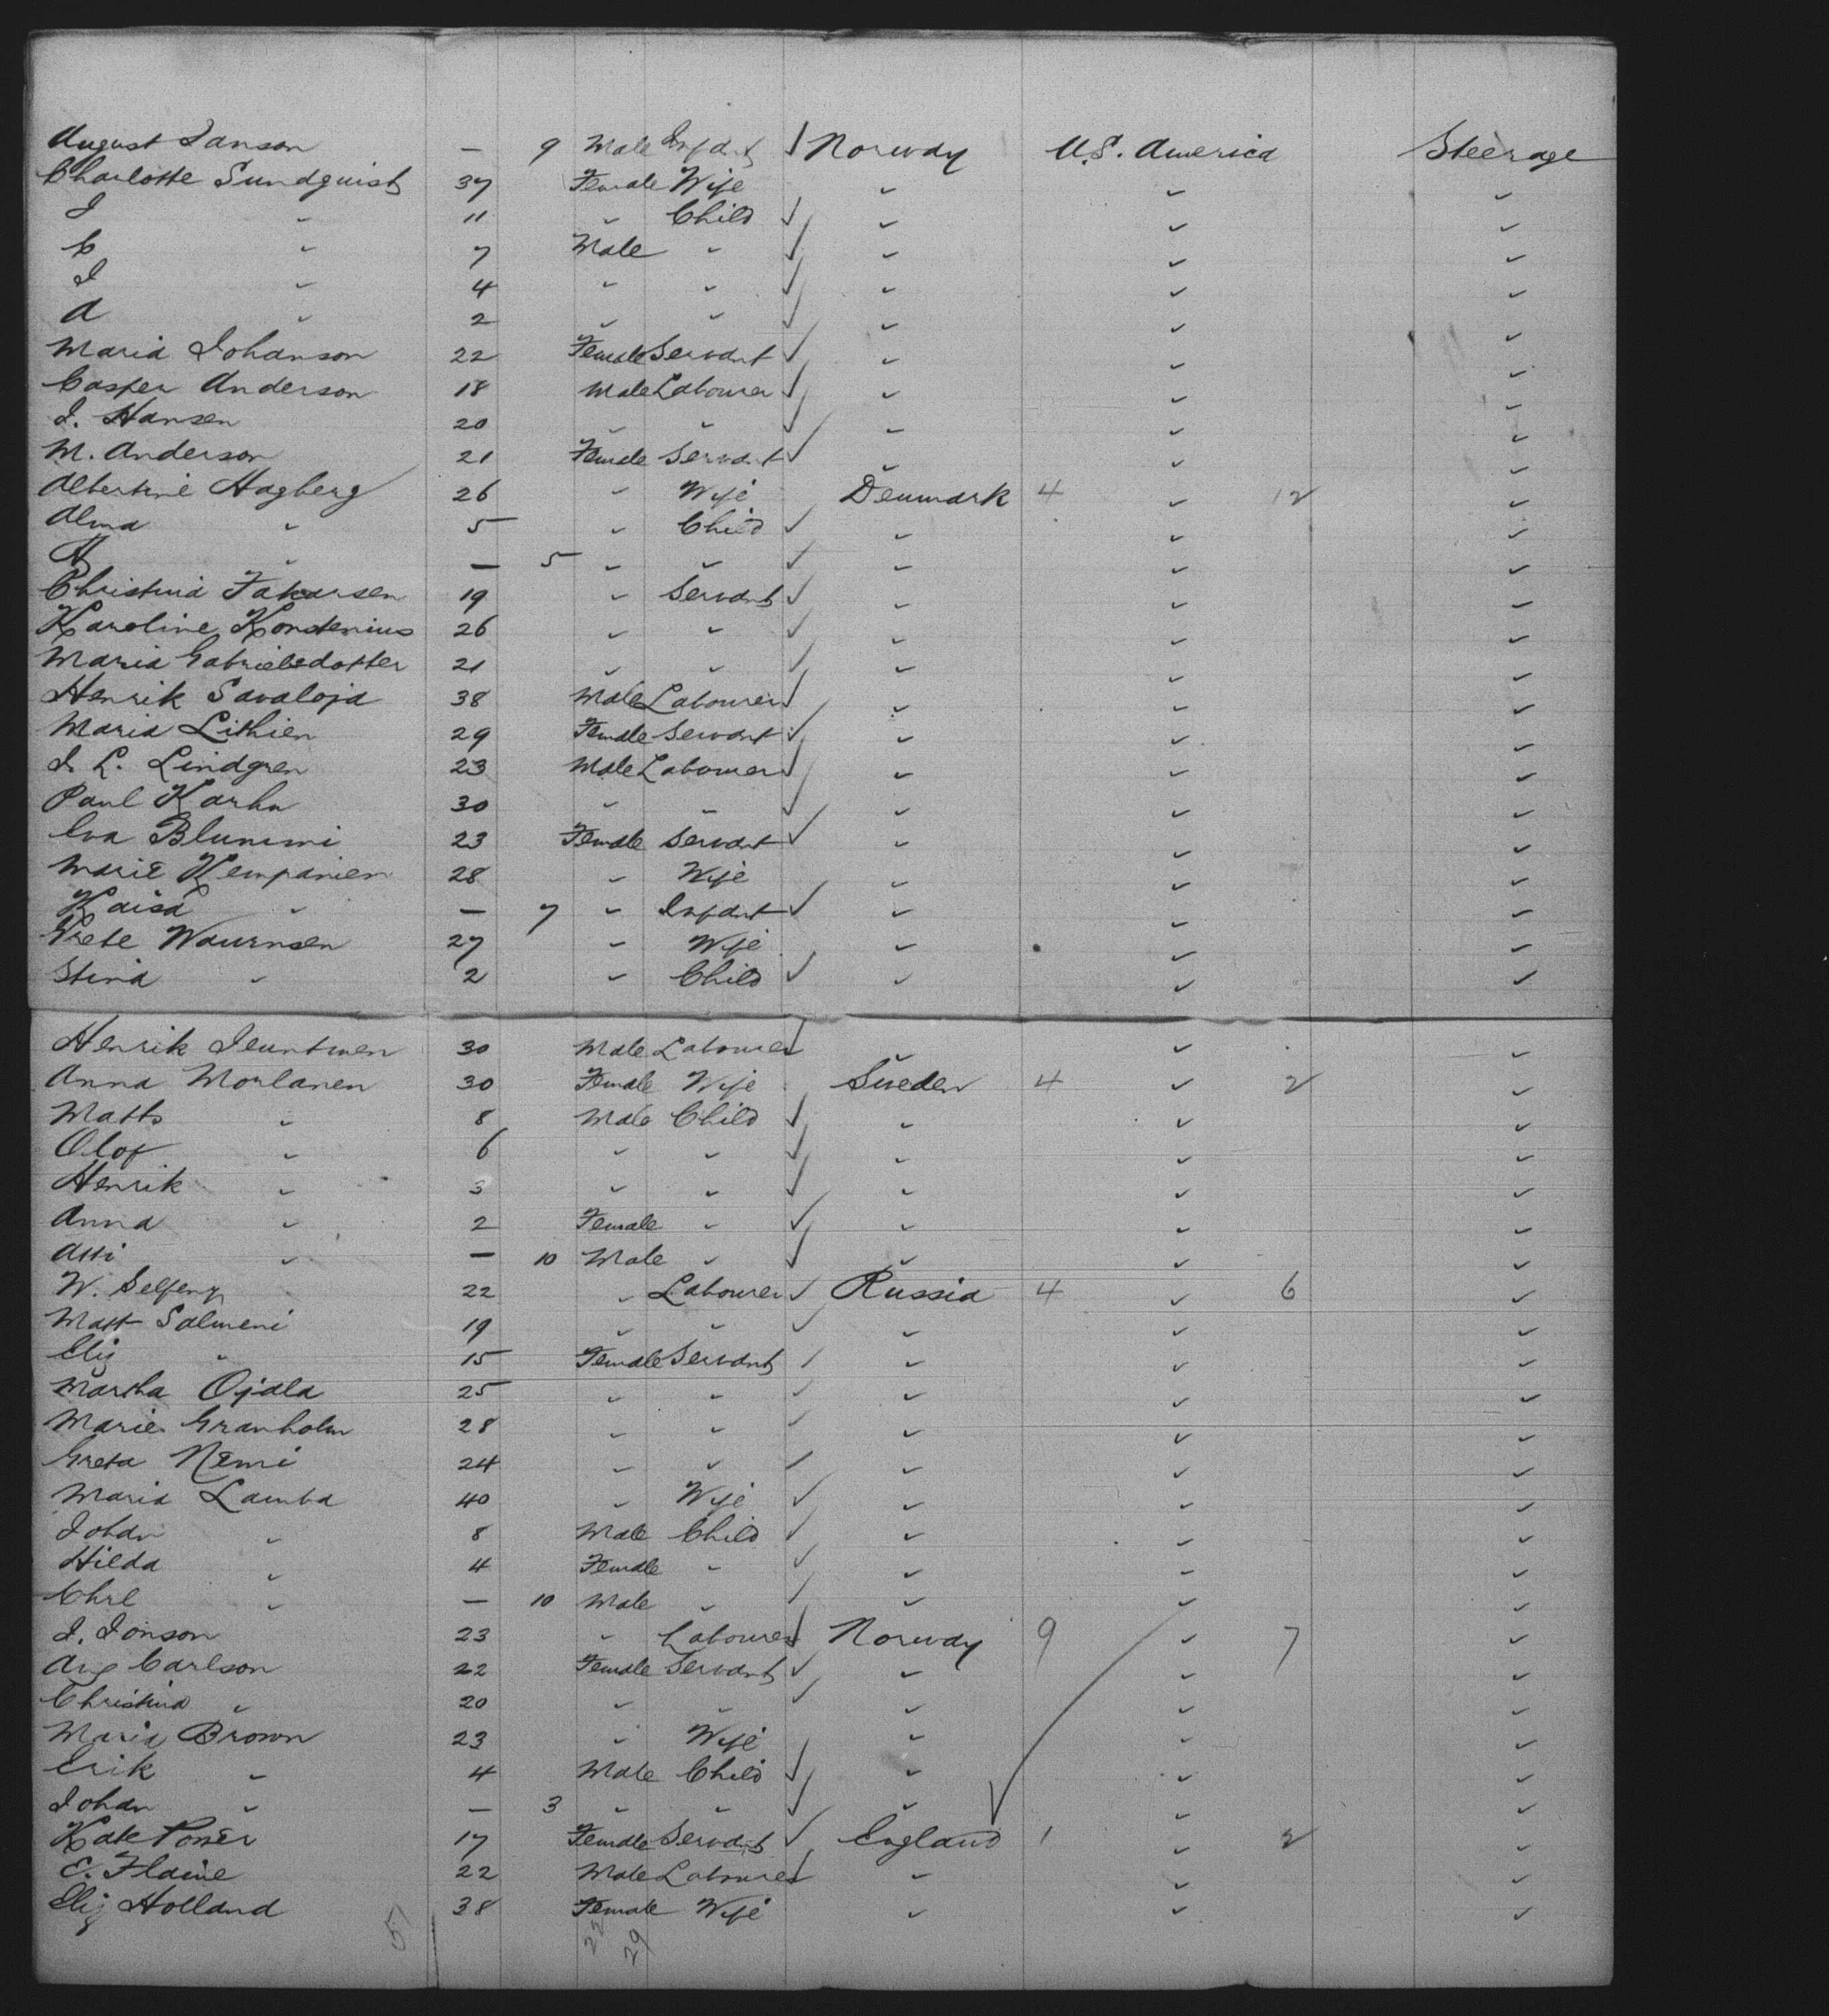 August Janson — 9 Male Infant ✓ Norway U.S. America Steerage
Charlotte Sundquist 37 Female Wife " " "
J " 11 " Child ✓ " " "
C " 7 Male " ✓ " " "
J " 4 " " ✓ " " "
A " 2 " " ✓ " " "
Maria Johanson 22 Female Servant ✓ " " "
Casper Anderson 18 Male Labourer ✓ " " "
J. Hansen 20 " " ✓ " " "
M. Anderson 21 Female Servant ✓ " " "
Albertine Hagberg 26 " Wife Denmark 4 " 12 "
Alma " 5 " Child ✓ " " "
A " — 5 " " ✓ " " "
Christina Fakarsen 19 " Servant ✓ " " "
Karoline Konstenius 26 " " ✓ " " "
Maria Gabrielsdotter 21 " " ✓ " " "
Henrik Savaloja 38 Male Labourer ✓ " " "
Maria Lithien 29 Female Servant ✓ " " "
J. L. Lindgren 23 Male Labourer ✓ " " "
Paul Karhu 30 " " ✓ " " "
Eva Blummi 23 Female Servant ✓ " " "
Marie Kempanien 28 " Wife " " "
Kaisa " — 7 " Infant ✓ " " "
Grete Waurnsen 27 " Wife " " "
Stina " 2 " Child ✓ " " "
Henrik 30 Male Labourer ✓ " " "
Anna Morlanen 30 Female Wife Sweden 4 " 2 "
Matts " 8 Male Child ✓ " " "
Olof " 6 " " ✓ " " "
Henrik " 3 " " ✓ " " "
Anna " 2 Female " ✓ " " "
Atti " — 10 Male " ✓ " " "
W. 22 " Labourer ✓ Russia 4 " 6 "
Matt Salmeni 19 " " ✓ " " "
Eliz " 15 Female Servant ✓ " " "
Martha Ojala 25 " " ✓ " " "
Marie Granholm 28 " " ✓ " " "
Greta Niemi 24 " " ✓ " " "
Maria Lamba 40 " Wife ✓ " " "
Johan " 8 Male Child ✓ " " "
Hilda " 4 Female " ✓ " " "
" — 10 Male " ✓ " " "
J. Jonson 23 " Labourer ✓ Norway 9 " 7 "
Aug Carlson 22 Female Servant ✓ " " "
Christina " 20 " " ✓ " " "
Maria Brown 23 " Wife " " "
Erik " 4 Male Child ✓ " " "
Johan " — 3 " " ✓ " " "
Kate 17 Female Servant ✓ England 1 " 2 "
E. Flaine 22 Male Labourer ✓ " " "
Eliz Holland 38 Female Wife " " "
51 22 29